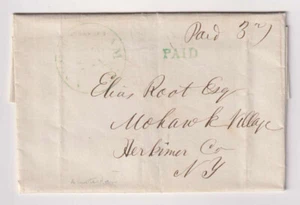 Paid 3
PAID
Elias Root Esq
Mohawk Village
Herkimer Co
NY